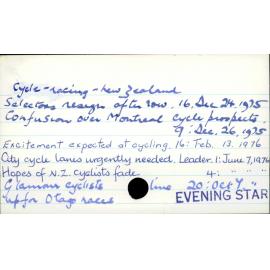 Cycle-racing-New Zealand
Selectors resign after row. 16. Dec 24, 1975
Confusion over Montreal cycle prospects.
9: Dec. 26, 1975
Excitement expected at cycling. 16: Feb. 13. 1976
City cycle lanes urgently needed. Leader. 1: June 7, 1976
Hopes of N.Z. cyclists fade 4: " " "
Glamour cyclists line 20: Oct 7 "
up for Otago races EVENING STAR